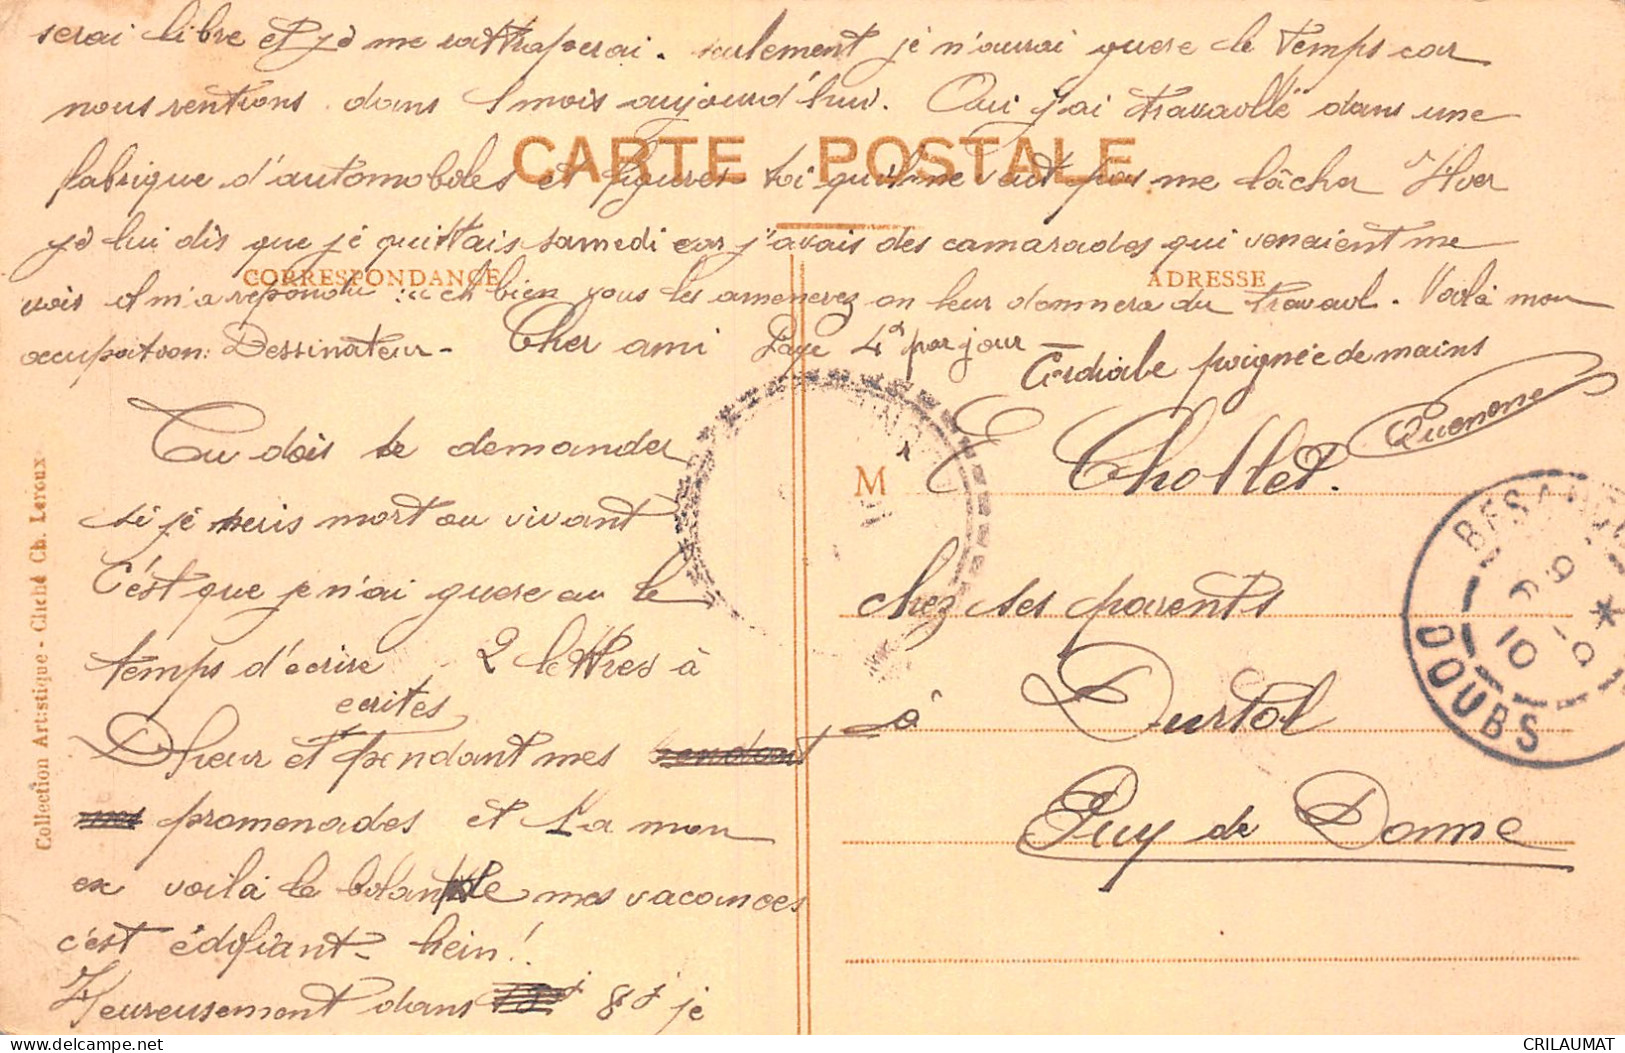 Cher ami
Tu dois te demander
si je suis mort ou vivant
C'est que je n'ai guere eu le
temps d'écrire 2 lettres à
écrites
et pendant mes
promenades et 1 a mon
ex voilà le bilan de mes vacances
c'est édifiant - hein!
Heureusement dans 8j je
serai libre et je me rattraperai. seulement je n'aurai guere le temps car
nous rentrons dans 1 mois aujourd'hui. Oui j'ai travaillé dans une
fabrique d'automobiles et figures toi qu'il ne veut pas me lâcher Hier
je lui dis que je quittais samedi car j'avais des camarades qui venaient me
voir il m'a répondu : eh bien vous les amenerez on leur donnera du travail. Voilà mon
occupation: Dessinateur - Paye 4f par jour -
Cordiale poignée de mains
CARTE POSTALE
CORRESPONDANCE
ADRESSE
M E Chollet.
chez ses parents
à Durtol
Puy de Dome
BESANÇON
DOUBS
Collection Artistique - Cliché Ch. Leroux
CRILAUMAT